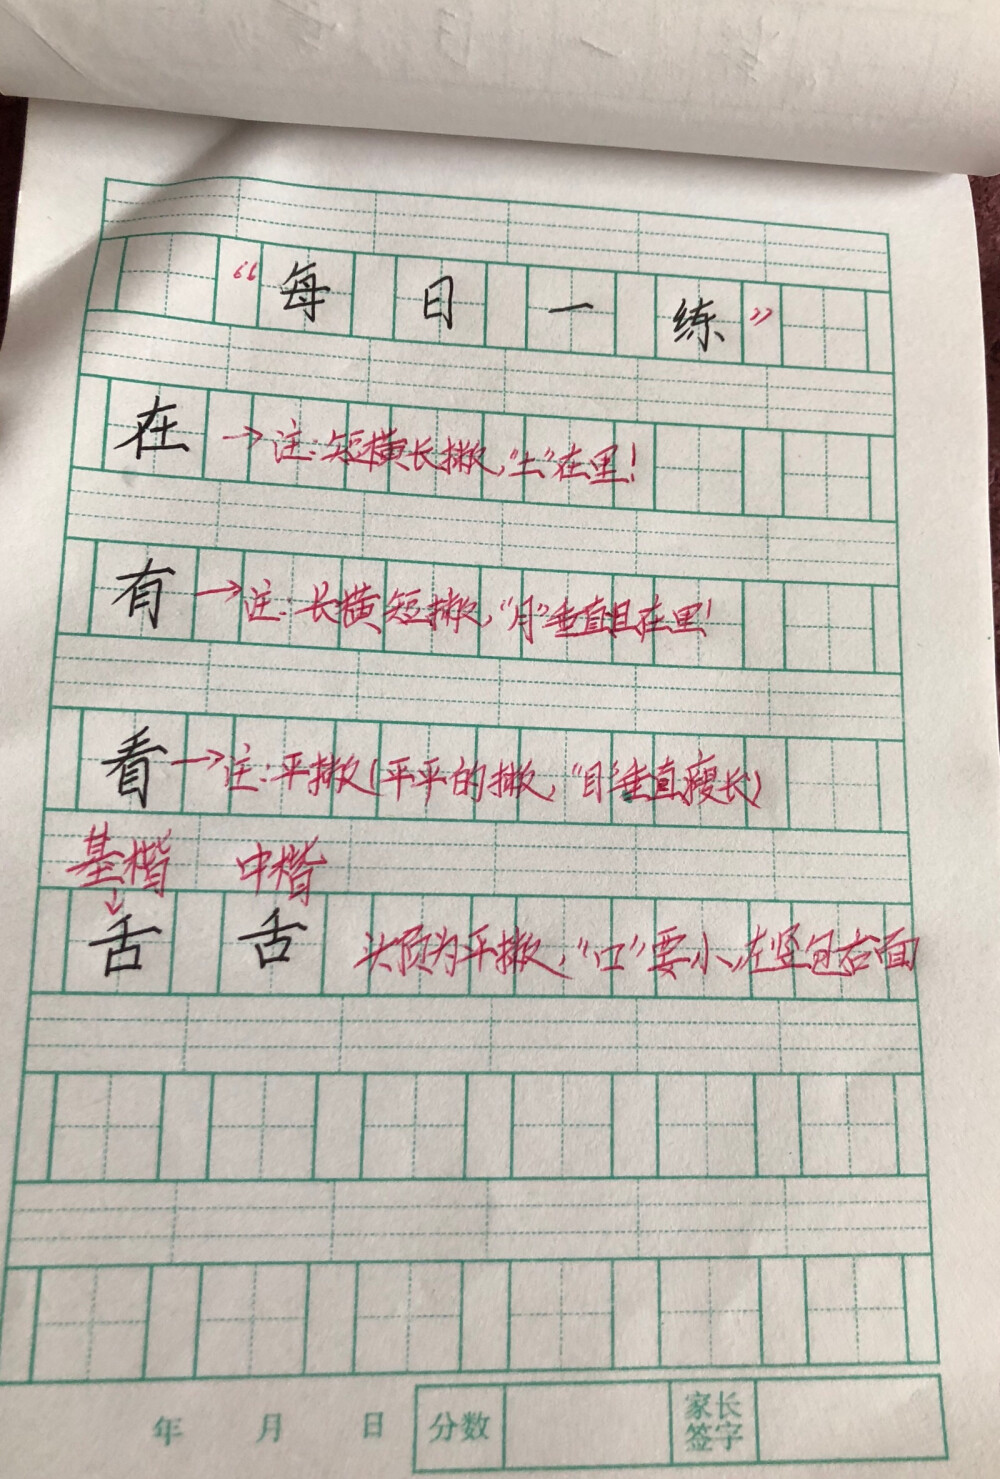 “每日一练”
在→注:短横长撇,“土”在里!
有→注:长横短撇,“月”垂直且在里!
看→注:平撇(平平的撇,“目”垂直瘦长)
基楷 中楷
↓
舌 舌 头顶为平撇,“口”要小,左竖包右面
年 月 日 分数 家长签字